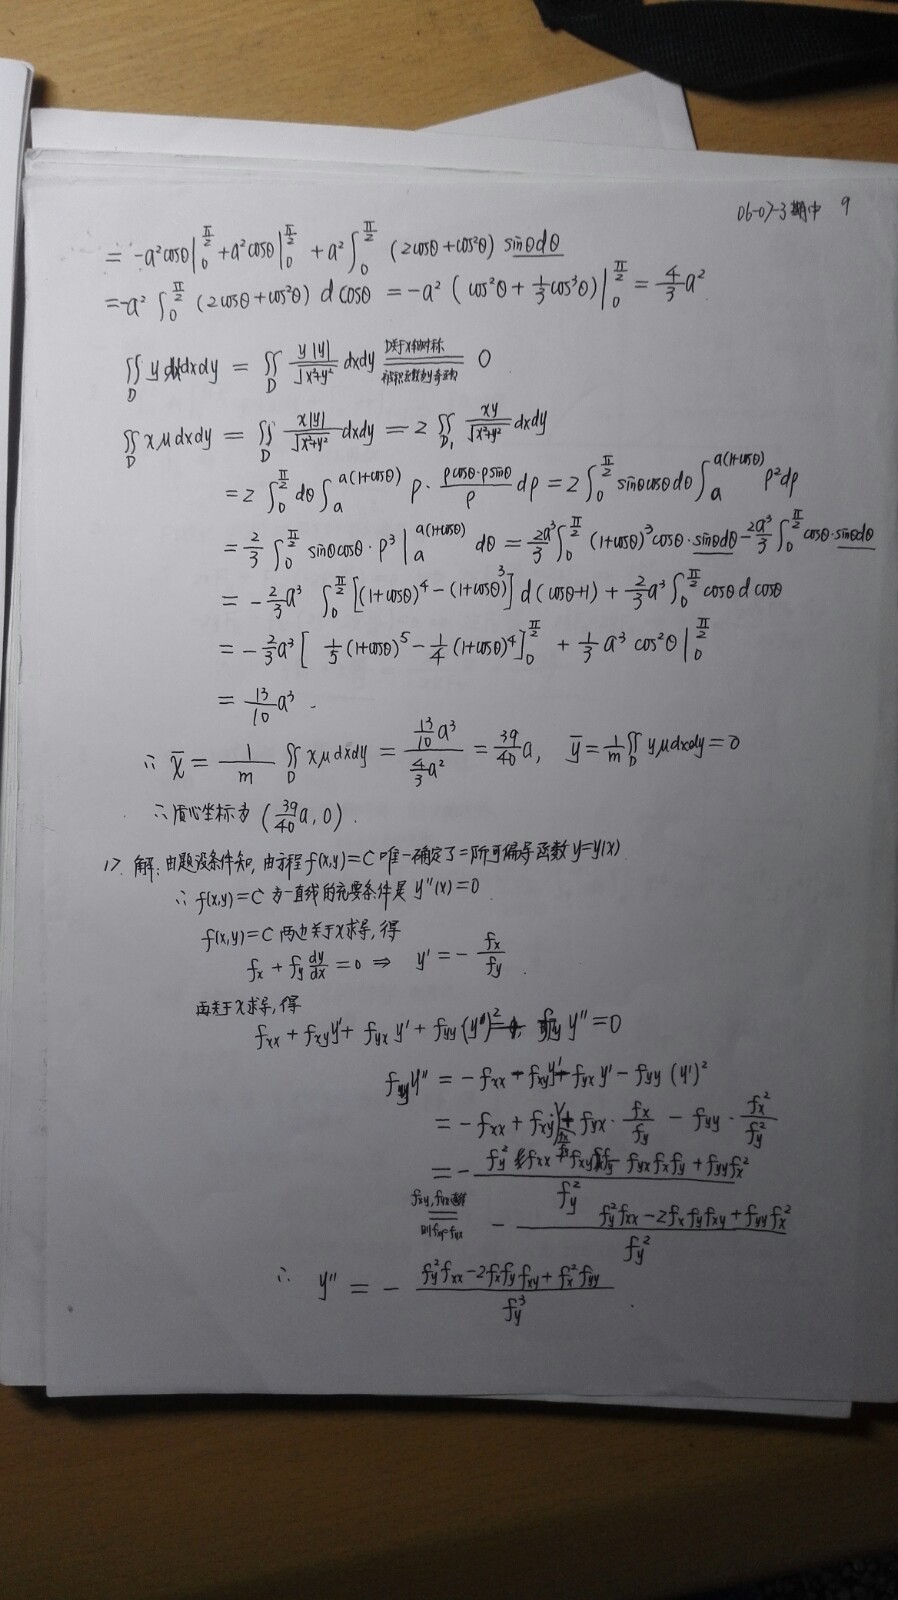 06-07-3期中 9
= -a²cosθ|₀^{π/2} + a²cosθ|₀^{π/2} + a²∫₀^{π/2} (2cosθ+cos²θ) sinθdθ
= -a² ∫₀^{π/2} (2cosθ+cos²θ) dcosθ = -a² (cos²θ + 1/3 cos³θ)|₀^{π/2} = 4/3 a²
∬_D yμdxdy = ∬_D y|y|/√(x²+y²) dxdy D关于x轴对称 被积函数为y奇函数 = 0
∬_D xμdxdy = ∬_D x|y|/√(x²+y²) dxdy = 2∬_{D₁} xy/√(x²+y²) dxdy
= 2∫₀^{π/2} dθ ∫_a^{a(1+cosθ)} ρ · (ρcosθ·ρsinθ)/ρ dρ = 2∫₀^{π/2} sinθcosθdθ ∫_a^{a(1+cosθ)} ρ²dρ
= 2/3 ∫₀^{π/2} sinθcosθ · ρ³|_a^{a(1+cosθ)} dθ = 2a³/3 ∫₀^{π/2} (1+cosθ)³cosθ·sinθdθ - 2a³/3 ∫₀^{π/2} cosθ·sinθdθ
= -2/3 a³ ∫₀^{π/2} [(1+cosθ)⁴ - (1+cosθ)³] d(cosθ+1) + 2/3 a³ ∫₀^{π/2} cosθdcosθ
= -2/3 a³ [1/5 (1+cosθ)⁵ - 1/4 (1+cosθ)⁴]₀^{π/2} + 1/3 a³ cos²θ|₀^{π/2}
= 13/10 a³.
∴ x̄ = 1/m ∬_D xμdxdy = (13/10 a³)/(4/3 a²) = 39/40 a, ȳ = 1/m ∬_D yμdxdy = 0
∴质心坐标为 (39/40 a, 0).
17. 解:由题设条件知,由方程f(x,y)=C唯一确定了二阶可偏导函数y=y(x)
∴ f(x,y)=C为一直线的充要条件是y″(x)=0
f(x,y)=C两边关于x求导,得
f_x + f_y dy/dx = 0 ⇒ y′ = - f_x/f_y.
再关于x求导,得
f_xx + f_xy y′ + f_yx y′ + f_yy (y′)² + f_y y″ = 0
f_y y″ = -f_xx - f_xy y′ - f_yx y′ - f_yy (y′)²
= -f_xx + f_xy f_x/f_y + f_yx · f_x/f_y - f_yy · f_x²/f_y²
= - (f_y² f_xx - f_xy f_x f_y - f_yx f_x f_y + f_yy f_x²)/f_y²
f_xy, f_yx连续 则f_xy=f_yx = - (f_y² f_xx - 2f_x f_y f_xy + f_yy f_x²)/f_y²
∴ y″ = - (f_y² f_xx - 2f_x f_y f_xy + f_x² f_yy)/f_y³.